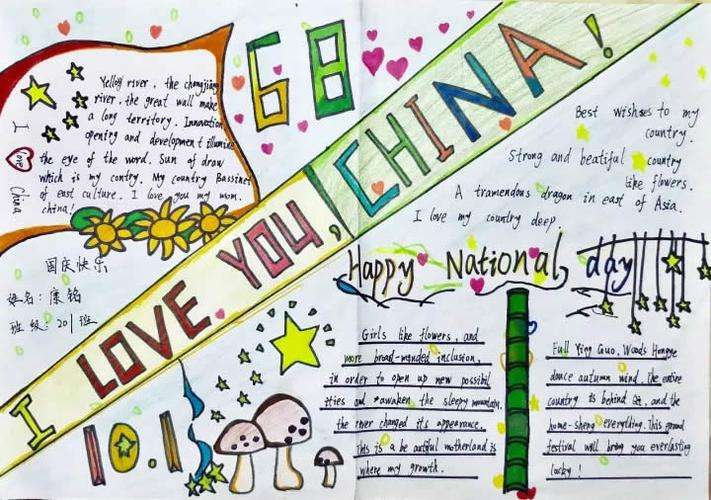 68
I LOVE YOU, CHINA!
Yellow river, the changjiang
river, the great wall make
a long territory. Innovation
opening and development illumine
the eye of the word. Sun of draw
which is my contry. My country Bassinet
of east culture. I love you my mom.
china!
I love China
国庆快乐
姓名:康铭
班级:201班
10.1
Best wishses to my
country.
Strong and beatiful country
like flowers.
A tramendous dragon in east of Asia.
I love my country deep.
Happy National day
Girls like flowers, and
more broad-minded inclusion,
in order to open up new possibil
ities and awaken the sleepy mountain.
the river changed its appearance.
This is a be autiful motherland is
where my growth.
Full Ying Guo. Woods Hongye
dance autumn wind. The entire
country is behind and the
home-sheng everything. This grand
festival will bring you everlasting
lucky!